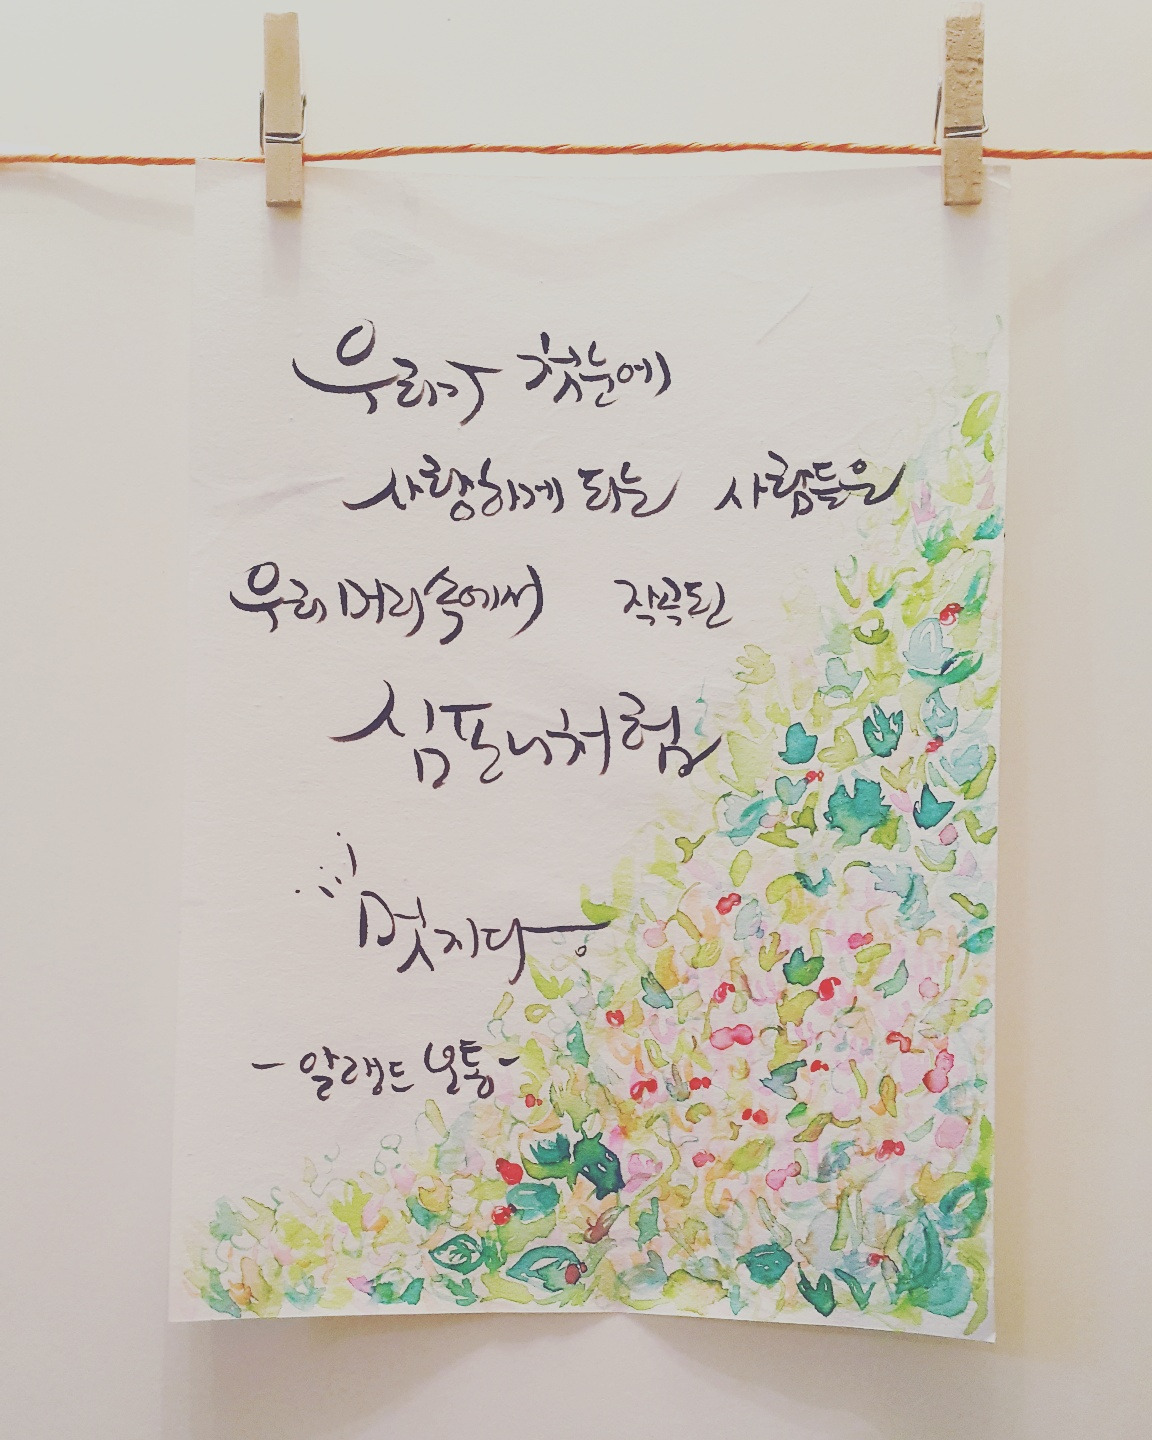 우리가 첫눈에
사랑하게 되는 사람들은
우리 머리 속에서 작곡된
심포니처럼
멋지다.
- 알랭드 보통 -